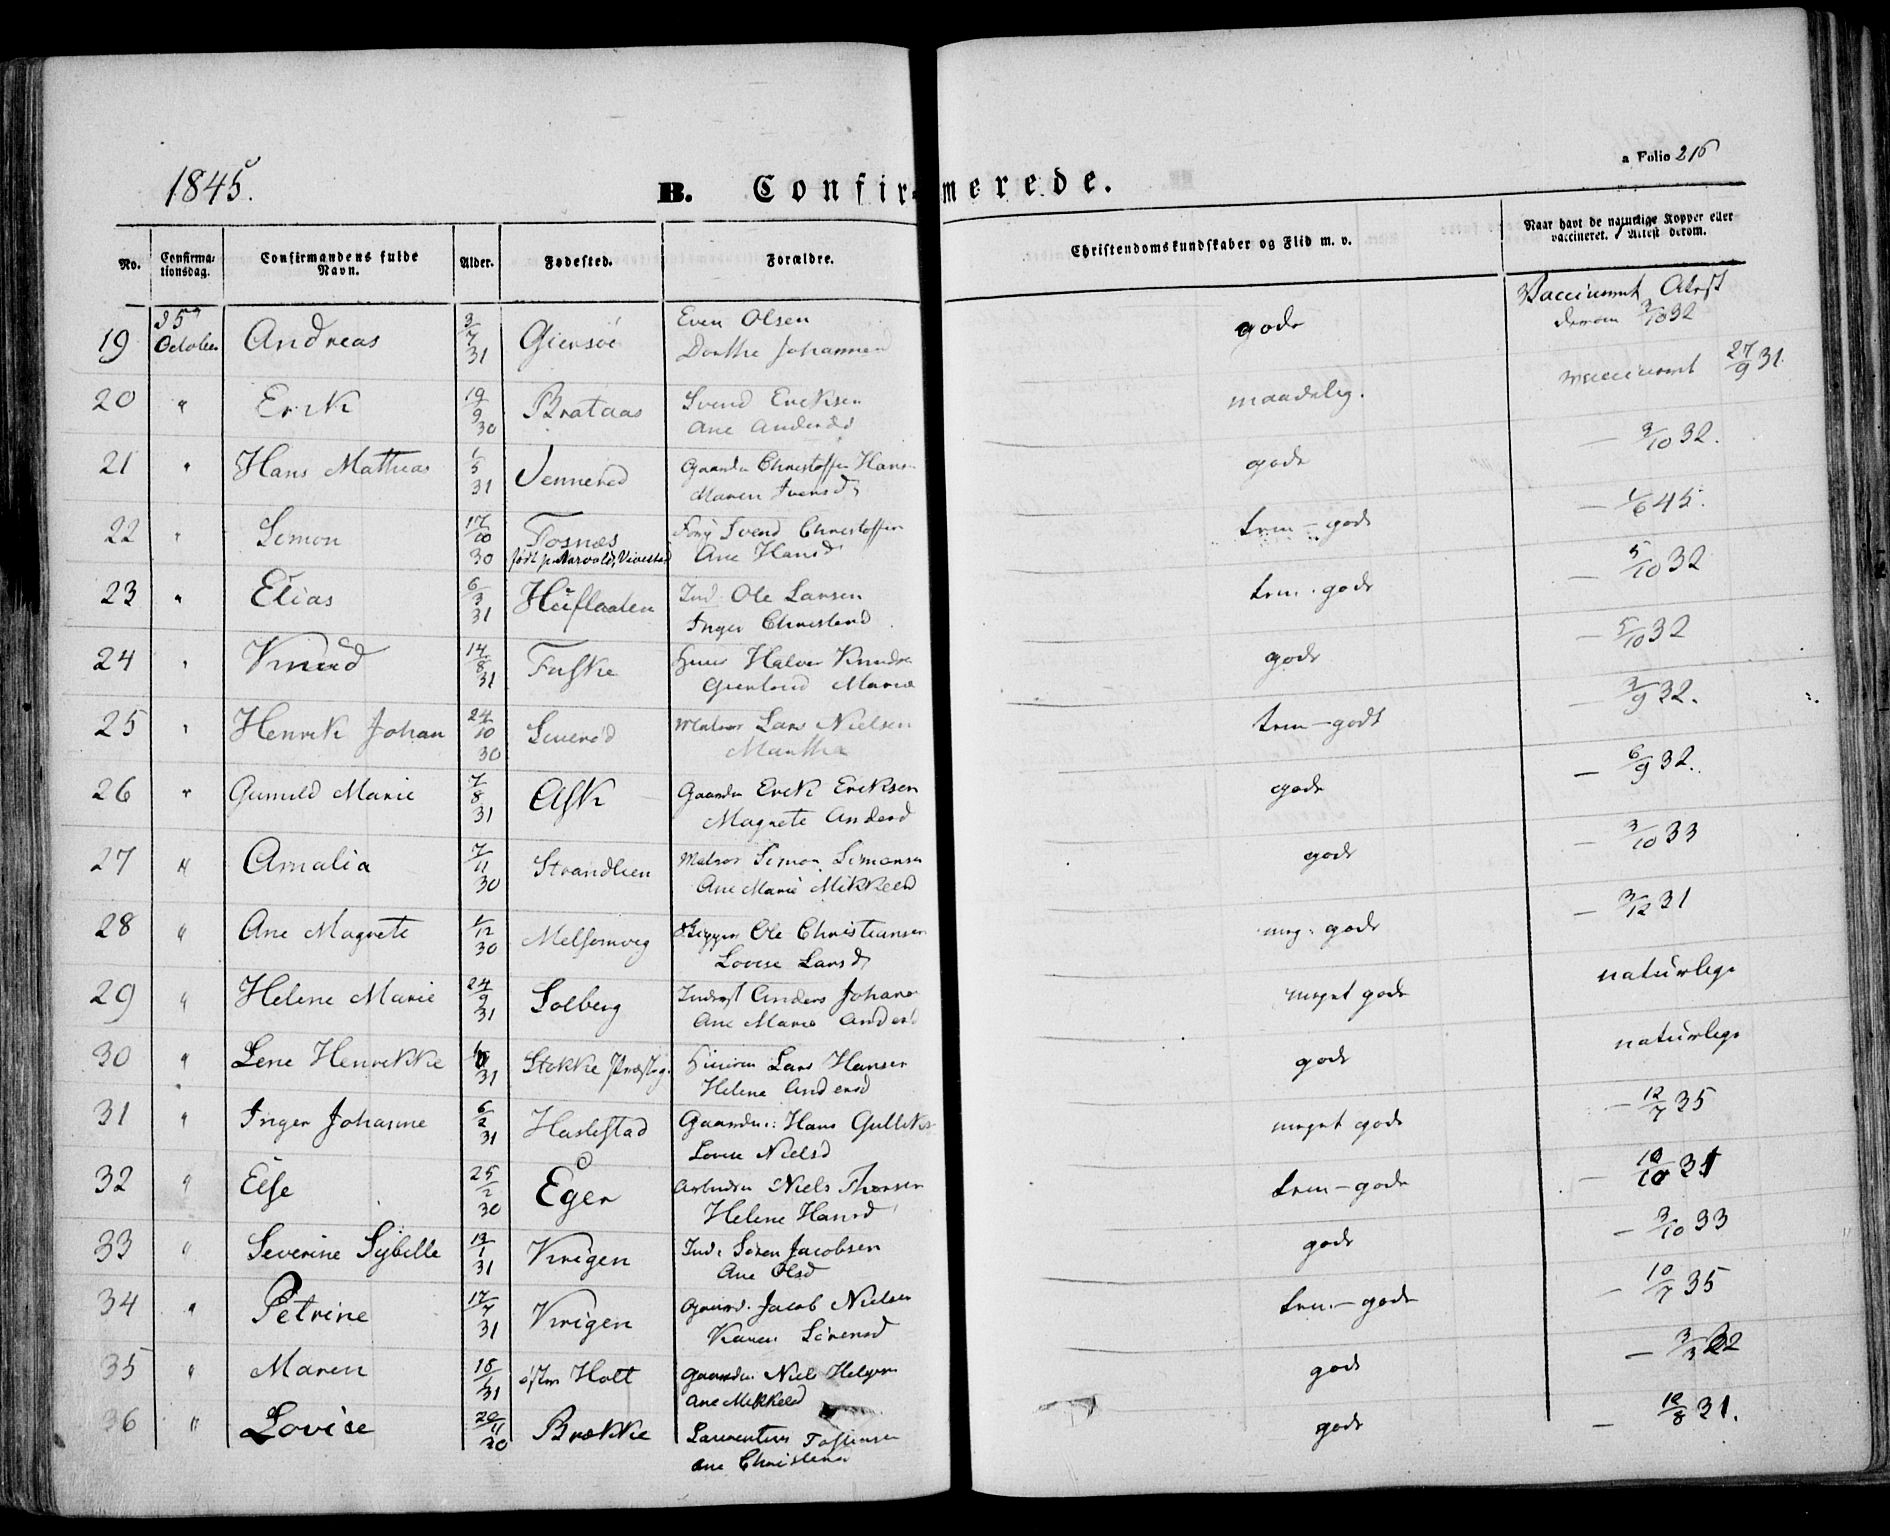 1845.
a Folio 216
B. Confirmerede.
No. Confirmationsdag. Confirmandens fulde Navn. Alder. Fødested. Forældre. Christendomskundskaber og Flid m. v. Naar havt de naturlige Kopper eller vaccineret. Attest derom.
19 October Andreas 3/7 31 Giersøe Even Olsen gode Vaccineret Attest
Dorthe Johannesd derom 3/10 32
20 " Erik 19/9 30 Brataas Svend Eriksen maadelig. vaccineret 27/9 31.
Ane Andersd
21 " Hans Mathias 1/5 31 Vennerød Gaardm Christoffer Hans gode – 3/10 32.
Maren Iversd
22 " Simon 17/10 30 Fosnæs Svend Christoffer tem – gode – 1/6 45.
født p. Aarvold, Vivestad Ane Hansd
23 " Elias 6/3 31 Ind. Ole Larsen tem. gode – 5/10 32
Inger Christensd
24 " Knud 14/8 31 Fuske Huus Halvor Knuds gode – 5/10 32
Marie
25 " Henrik Johan 24/10 30 Matros Lars Nielsen tem – godt – 3/9 32.
Marthe
26 " Gunild Marie 7/8 31 Ask Gaardm Erik Eriksen gode – 6/9 32.
Magrete Andersd
27 " Amalia 7/11 30 Strandlien Matros Simon Simonsen gode – 3/10 33
Ane Marie Mikkelsd
28 " Ane Magrete 1/12 30 Melsomvig Skipper Ole Christiansen meg. gode – 3/12 31
Lovise Larsd
29 " Helene Marie 24/9 31 Solberg Inderst Anders Johans meget gode naturlige
Ane Marie Andersd
30 " Lene Henrikke 31 Stokke Præstg. Lars Hansen gode naturlige
Helene Andersd
31 " Inger Johanne 6/2 31 Haslestad Gaardm: Hans Gulliks meget gode – 12/7 35
Lovise Nielsd
32 " Else 25/2 30 Eger Arbeidsm Niels Thorsen tem – gode – 10/10 31
Helene Hansd
33 " Severine Sybille 13/1 31 Virigen Ind: Søren Jacobsen gode – 3/10 33
Ane Olsd
34 " Petrine 17/7 31 Virigen Gaard. Jacob Nielsen tem – gode – 10/7 35
Karen Sørensd
35 " Maren 31 østre Holt Gaardm. Niels Helgesen gode – 3/3 32
Ane Mikkelsd
36 " Lovise 20/11 30 Brække Laurentius Tostensen gode – 12/8 31.
Ane Christensd